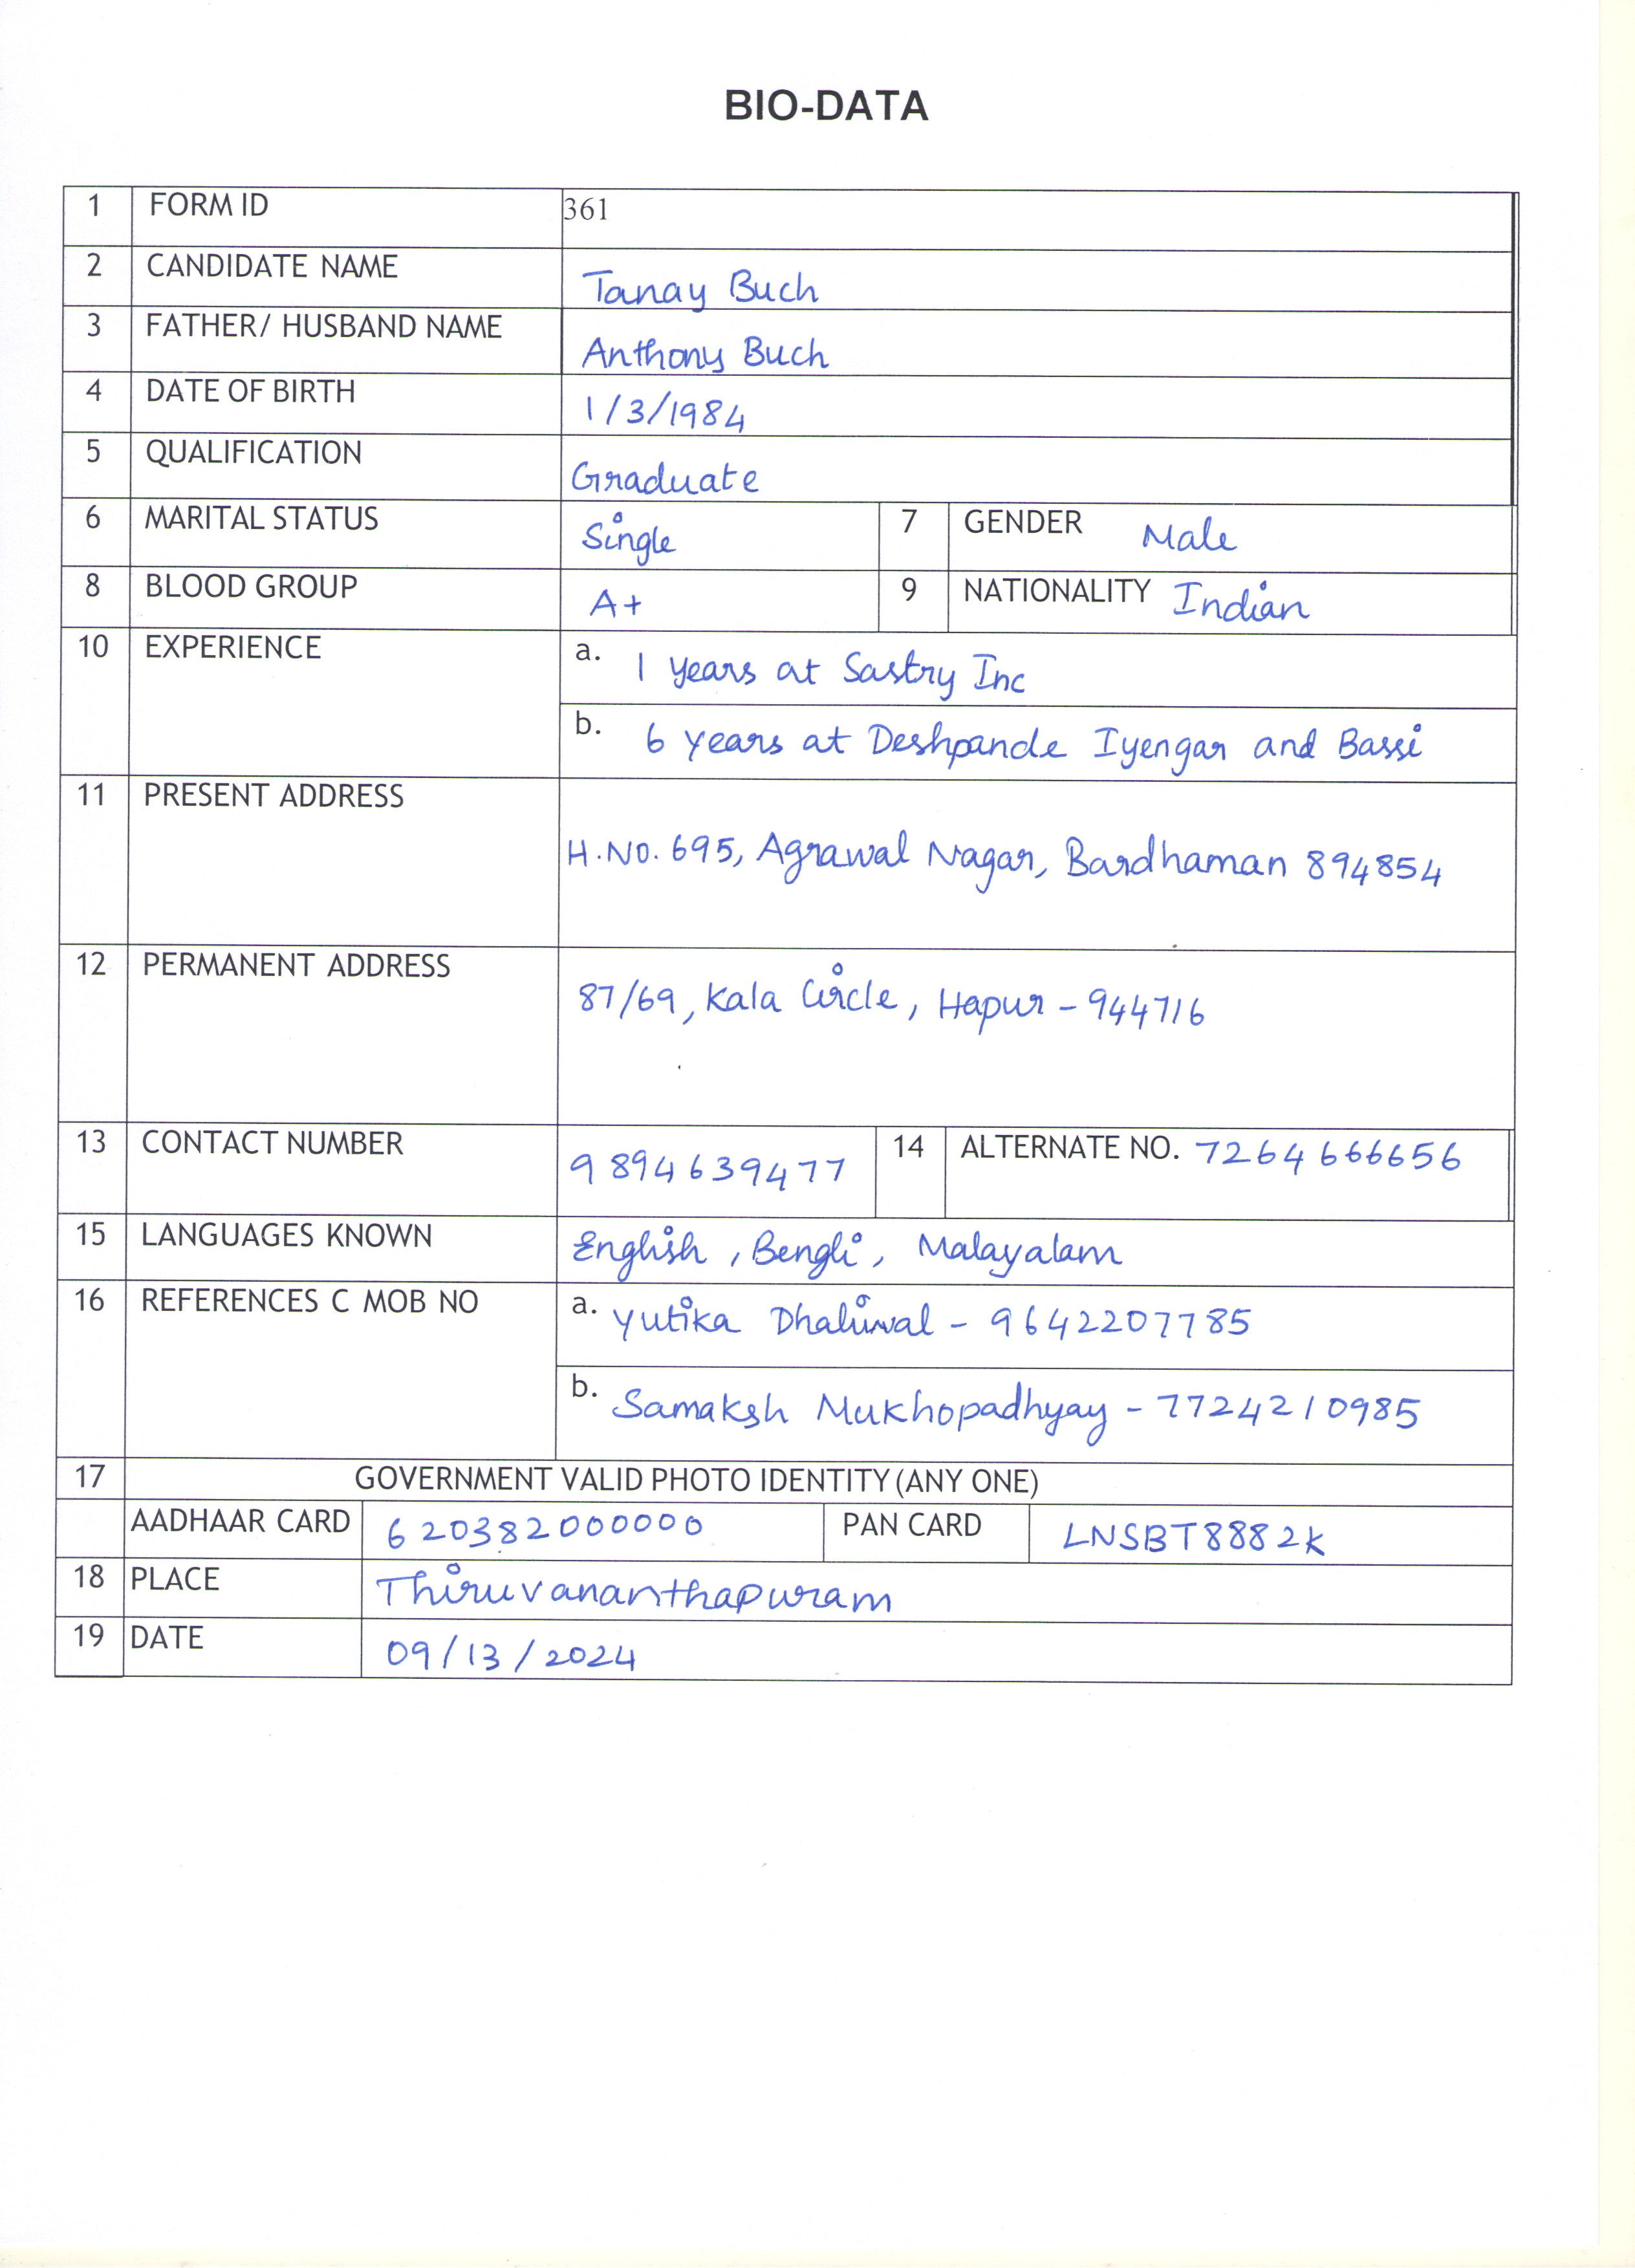 BIO-DATA
1 FORM ID 361
2 CANDIDATE NAME Tanay Buch
3 FATHER/ HUSBAND NAME Anthony Buch
4 DATE OF BIRTH 1/3/1984
5 QUALIFICATION Graduate
6 MARITAL STATUS Single 7 GENDER Male
8 BLOOD GROUP A+ 9 NATIONALITY Indian
10 EXPERIENCE a. 1 years at Sastry Inc
b. 6 years at Deshpande Iyengar and Bassi
11 PRESENT ADDRESS
H.No. 695, Agrawal Nagar, Bardhaman 894854
12 PERMANENT ADDRESS 87/69, Kala Circle, Hapur - 944716
13 CONTACT NUMBER 9894639477 14 ALTERNATE NO. 7264666656
15 LANGUAGES KNOWN English, Bengli, Malayalam
16 REFERENCES C MOB NO a. Yutika Dhaliwal - 9642207785
b. Samaksh Mukhopadhyay - 7724210985
17 GOVERNMENT VALID PHOTO IDENTITY (ANY ONE)
AADHAAR CARD 620382000000 PAN CARD LNSBT8882K
18 PLACE Thiruvananthapuram
19 DATE 09/13/2024